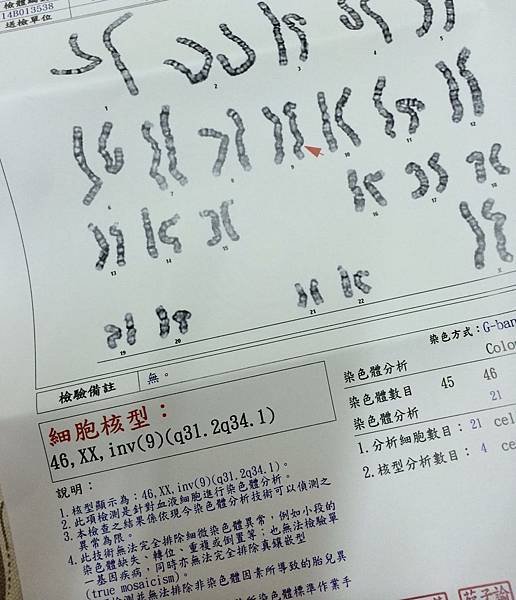 14B013538
送檢單位
1
2
3
4
5
6
7
8
9
10
11
12
13
14
15
16
17
18
19
20
21
22
X
檢驗備註
無。
細胞核型：
46,XX,inv(9)(q31.2q34.1)
說明：
1.核型顯示為：46,XX,inv(9)(q31.2q34.1)。
2.此項檢測是針對血液細胞進行染色體分析。
3.本檢查之結果係依現今染色體分析技術可以偵測之
異常為限。
4.此技術無法完全排除細微染色體異常，例如小段的
染色體缺失、轉位，重複或倒置等；也無法檢驗單
一基因疾病，同時亦無法完全排除真鑲嵌型
(true mosaicism)。
並無法排除非染色體因素所導致的胎兒異
染色體標準作業手
染色方式：G-ban
染色體分析
Colo
染色體數目 45 46
染色體分析 21
1.分析細胞數目：21 cel
2.核型分析數目： 4 ce